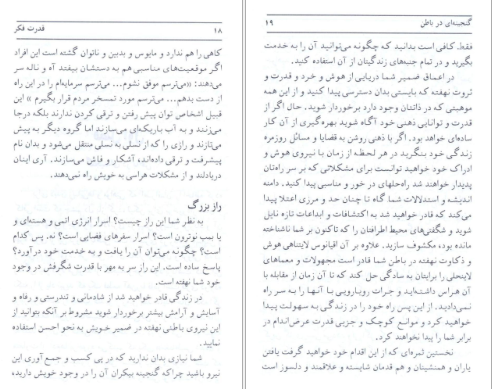 ۱۸ قدرت فکر
کاهی را هم ندارد و مایوس و بدبین و ناتوان گشته است این افراد
اگر موقعیت‌های مناسبی هم به دستشان بیفتد آه و ناله سر
می‌دهند: «می‌ترسم موفق نشوم... می‌ترسم سرمایه‌ام را در این راه
از دست بدهم... می‌ترسم مورد تمسخر مردم قرار بگیرم» این
قبیل اشخاص توان پیش رفتن و ترقی کردن ندارند بلکه درجا
می‌زنند و به آب باریکه‌ای می‌سازند اما گروه دیگر به پیش
می‌تازند و رازی را که از نسلی به نسلی منتقل می‌شود و بدان نام
پیشرفت و ترقی داده‌اند آشکار و فاش می‌سازند. آری اینان
دریادلند و از مشکلات هراسی به خویش راه نمی‌دهند.
راز بزرگ
به نظر شما این راز چیست؟ اسرار انرژی اتمی و هسته‌ای و
یا بمب نوترون است؟ اسرار سفرهای فضایی است؟ نه. پس کدام
است؟ چگونه می‌توان آن را یافت و به خدمت خود درآورد؟
پاسخ ساده است. این راز سر به مهر با قدرت شگرفش در وجود
خود شما نهفته است.
در زندگی قادر خواهید شد از شادمانی و تندرستی و رفاه و
آسایش و آرامش بیشتر برخوردار شوید مشروط بر آنکه بتوانید از
این نیروی باطنی نهفته در ضمیر خویش به نحو احسن استفاده
نمایید.
شما نیازی بدان ندارید که در پی کسب و جمع آوری این
نیرو باشید چراکه گنجینه بیکران آن را در وجود خویش دارید،
گنجینه‌ای در باطن ۱۹
فقط کافی است بدانید که چگونه می‌توانید آن را به خدمت
بگیرید و در تمام جنبه‌های زندگیتان از آن استفاده کنید.
در اعماق ضمیر شما دریایی از هوش و خرد و قدرت و
ثروت نهفته که بایستی بدان دسترسی پیدا کنید و از این همه
موهبتی که در ذاتتان وجود دارد برخوردار شوید. حال اگر از
قدرت و توانایی ذهنی خود آگاه شوید بهره‌گیری از آن کار
ساده‌ای خواهد بود. اگر با ذهنی روشن به قضایا و مسائل روزمره
زندگی خود بنگرید در هر لحظه از زمان با نیروی هوش و
ادراک خود خواهید توانست برای مشکلاتی که بر سر راه‌تان
پدیدار خواهند شد راه‌حلهای در خور و مناسبی پیدا کنید. دامنه
اندیشه و استدلالات شما گاه تا چنان حد و مرزی اعتلا پیدا
می‌کند که قادر خواهید شد به اکتشافات و ابداعات تازه نایل
شوید و شگفتی‌های محیط اطرافتان را که تاکنون بر شما ناشناخته
مانده بوده مکشوف سازید. علاوه بر آن اقیانوس لایتناهی هوش
و ذکاوت نهفته در باطن شما قادر است مجهولات و معماهای
لاینحلی را برایتان به سادگی حل کند که تا آن زمان از مقابله با
آن هراس داشته‌اید و جرات رویارویی با آنها را به سر راه
نمی‌دادید. از این پس راه خود را در زندگی به سهولت پیدا
خواهید کرد و موانع کوچک و جزیی قدرت عرض‌اندام در
برابر شما را پیدا نخواهند کرد.
نخستین ثمره‌ای که از این اقدام خود خواهید گرفت یافتن
یاران و همنشینان و هم قدمان شایسته و علاقمند و دلسوز است